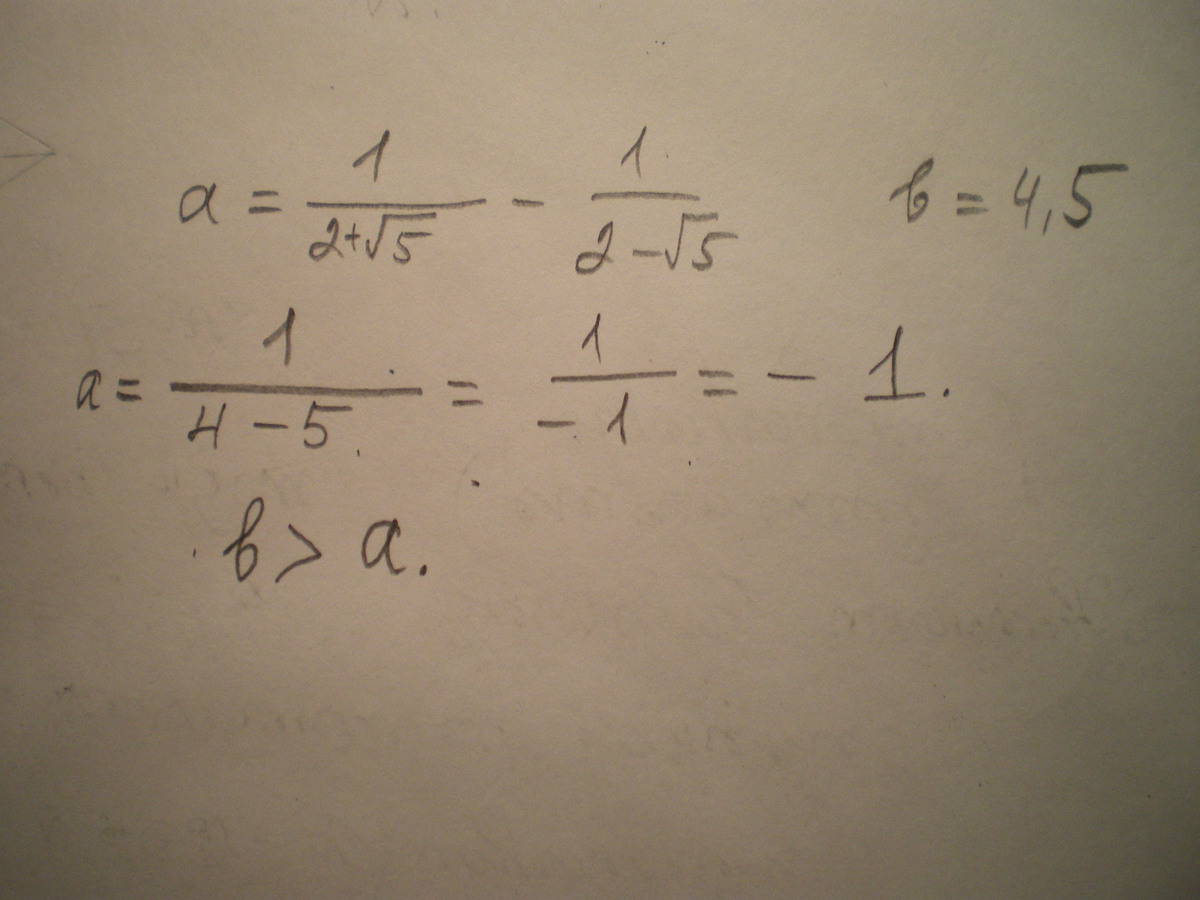 a = 1/(2+√5) - 1/(2-√5) в = 4,5
a = 1/(4-5) = 1/(-1) = - 1.
в > a.